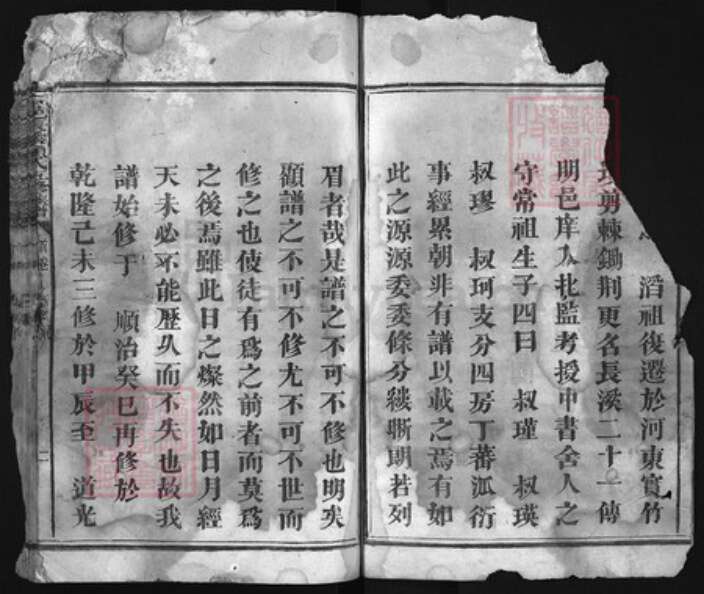 滔祖復遷於河東實竹
剪棘鋤荆更名長溪二十一傳
明邑庠入北監考授中書舍人之
守常祖生子四曰 叔瑾 叔瑛
叔璆 叔珂支分四房丁蕃派衍
事經累朝非有譜以載之焉有如
此之源源委委條分縷晰朗若列
眉者哉是譜之不可不修也明矣
顧譜之不可不修尤不可不世而
修之也使徒有爲之前者而莫爲
之後焉雖此日之燦然如日月經
天未必不能歷久而不失也故我
譜始修于 順治癸巳再修於
乾隆己未三修於甲辰至 道光